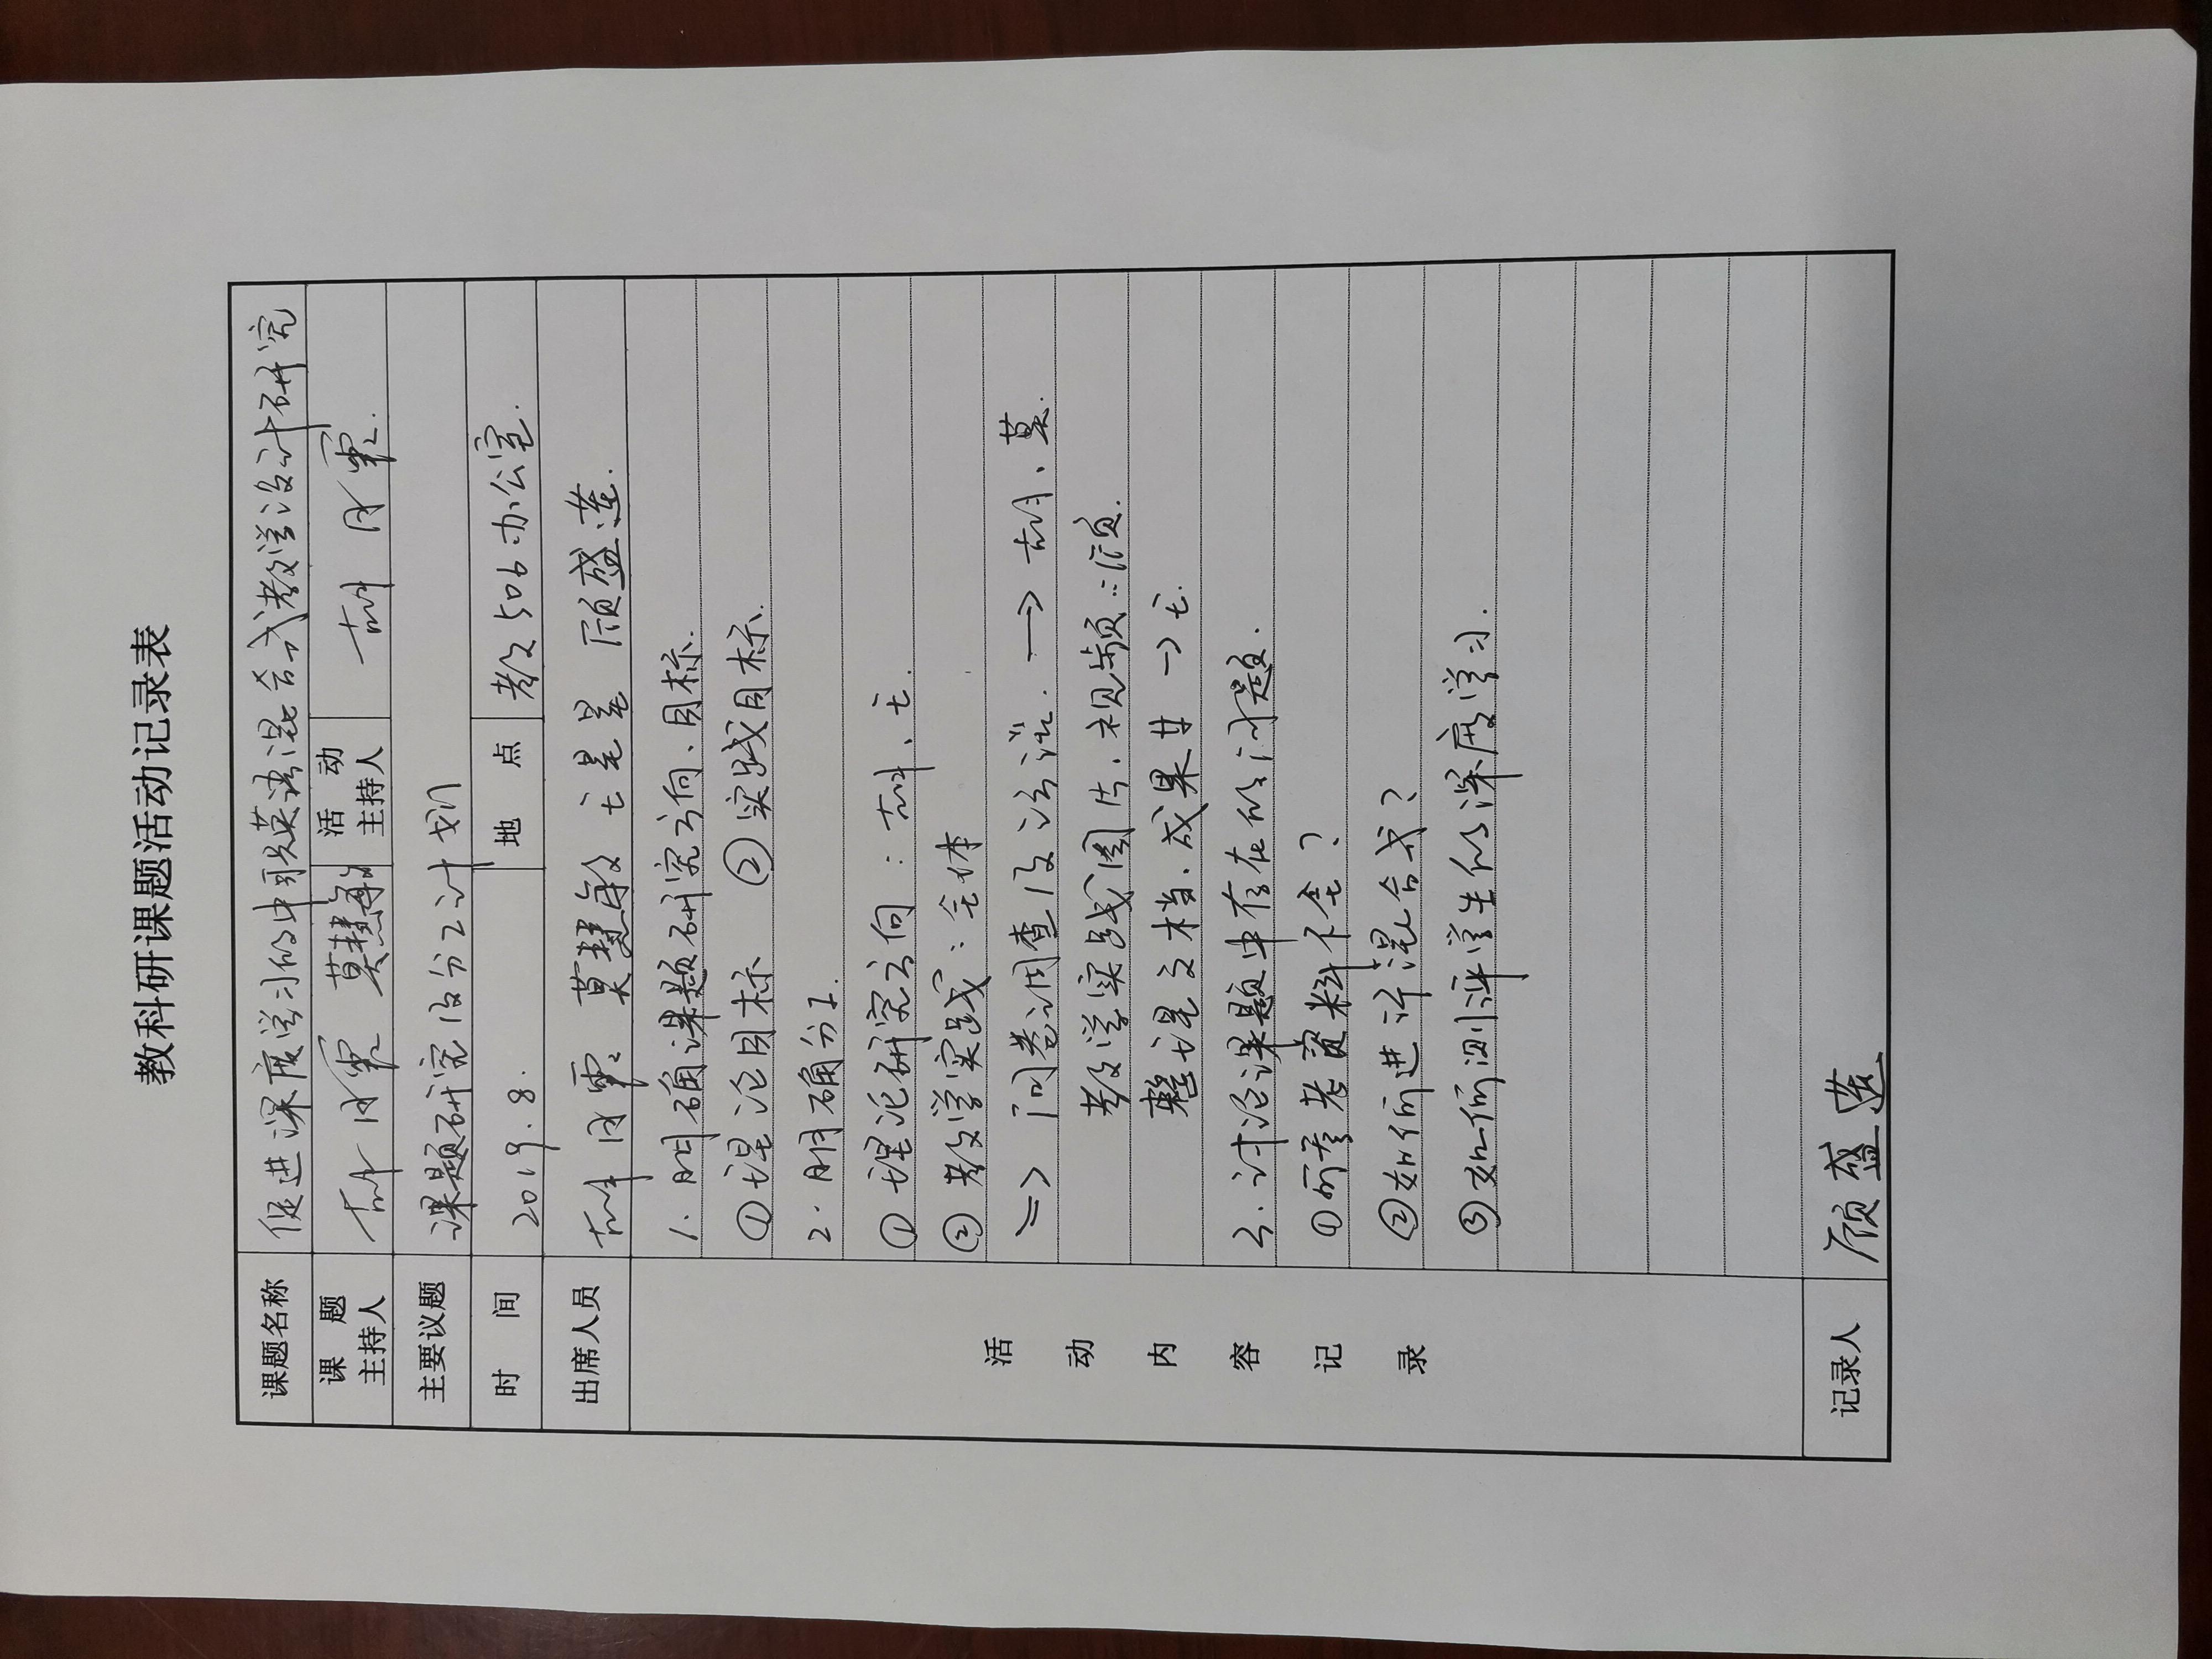 教科研课题活动记录表
课题名称 促进深度学习的中职英语混合式教学设计研究
课题主持人 胡月霞 莫慧敏 活动主持人 胡月霞.
主要议题 课题研究及分工计划
时间 2019.8. 地点 教506办公室.
出席人员 胡月霞 莫慧敏 王昊昊 顾盛莲.
活动内容记录
1. 明确课题研究方向、目标.
①理论目标 ②实践目标.
2. 明确分工.
①理论研究方向：胡、王.
②教学实践：全体
=> 问卷调查及访谈. → 胡、莫.
教学实践图片、视频：顾.
整理文档、成果集 → 王.
3. 讨论课题中存在的问题.
①所参考资料不全？
②如何进行混合式？
③如何测评学生的深度学习.
记录人 顾盛莲